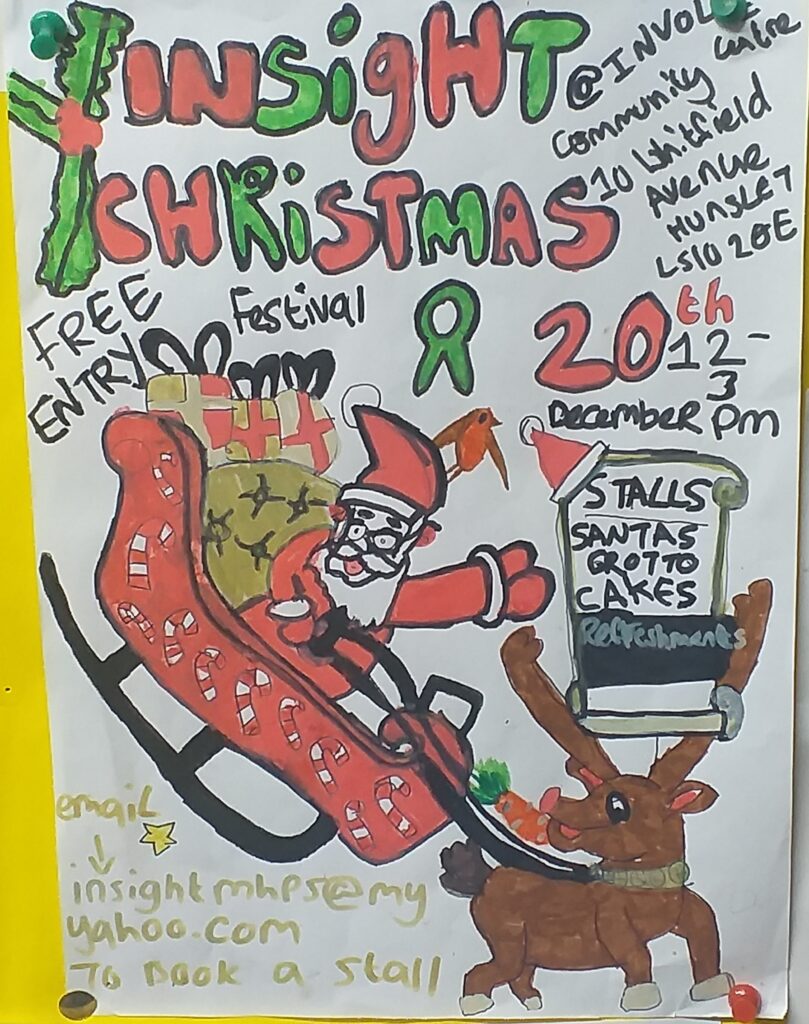 INSiGHT
CHRiSTMAS
@INVOLVE
centre
Community
10 Whitfield
Avenue
HUNSLET
LS10 2QE
FREE
ENTRY
Festival
20th
12-
3
pm
December
STALLS
SANTAS
GROTTO
CAKES
Refreshments
email
insightmhps@my
yahoo.com
To Book a Stall